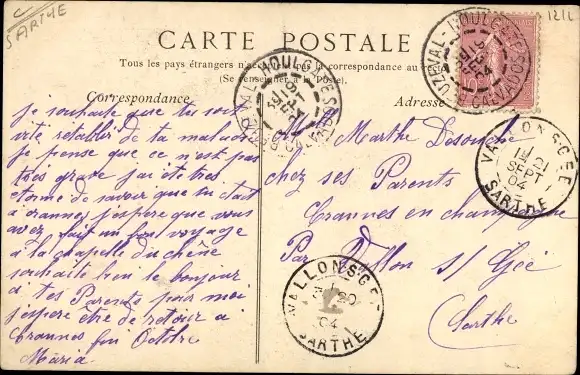 SARTHE
1212
CARTE POSTALE
Tous les pays étrangers n'acceptent pas la correspondance au recto
(Se renseigner à la Poste).
Correspondance
Adresse
je souhaite que tu soit
vite rétablir de ta maladie
je pense que ce n'est pas
tres grave j'ai été tres
etonné de savoir que tu était
a crannes j'espere que vous
avez fait un bon voyage
a la chapelle du chêne
souhaite bien le bonjour
a tes Parents pour moi
j'espere être de retour a
Crannes fin Octobre
Maria
Marthe
chez ses Parents
Crannes en champagne
Par Vallon s/ Gée
Sarthe
CALVADOS
VALLON S GEE
21
SEPT
04
SARTHE
VALLON S GEE
20
04
SARTHE